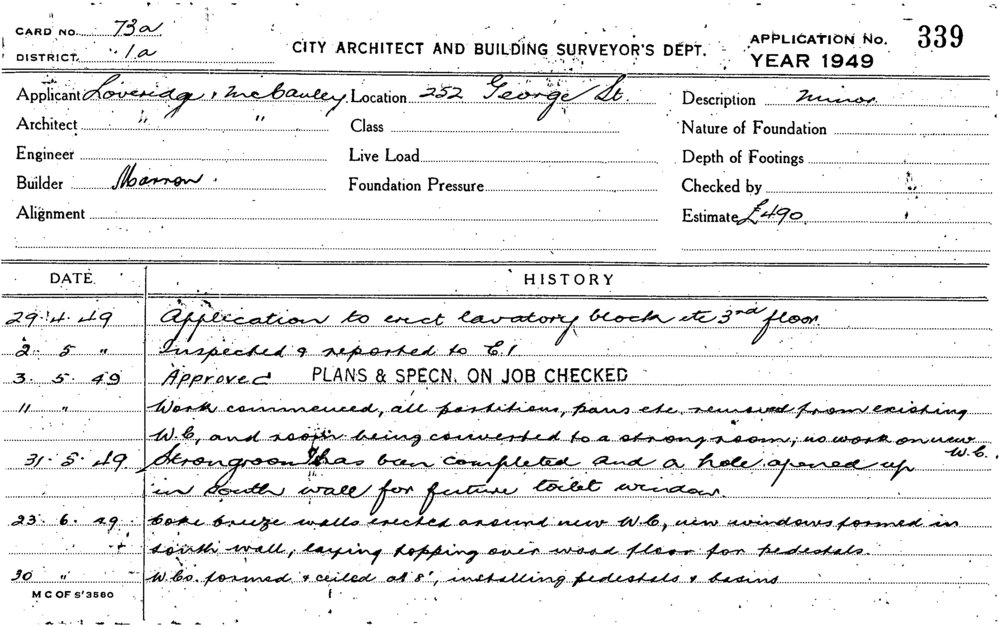 CARD NO. 73a
DISTRICT. 1a
CITY ARCHITECT AND BUILDING SURVEYOR'S DEPT.
APPLICATION No. 339
YEAR 1949
Applicant Loveridge & McCauley Location 252 George St. Description minor
Architect " " Class Nature of Foundation
Engineer Live Load Depth of Footings
Builder Marron. Foundation Pressure Checked by
Alignment Estimate £490
DATE. HISTORY
29.4.49 Application to erect lavatory block etc 3rd floor.
2. 5 " Inspected & reported to C.I
3. 5. 49 Approved PLANS & SPECN. ON JOB CHECKED
11 " Work commenced, all partitions, pans etc. removed from existing
W.C, and room being converted to a strongroom, no work on new
W.C.
31.5.49 Strongroom has been completed and a hole opened up
in South wall for future toilet window.
23. 6. 49 Coke breeze walls erected around new W.C, new windows formed in
south wall, laying topping over wood floor for pedestals.
30 " W.Cs. formed & ceiled at 8', installing pedestals & basins
M C OF S'3580